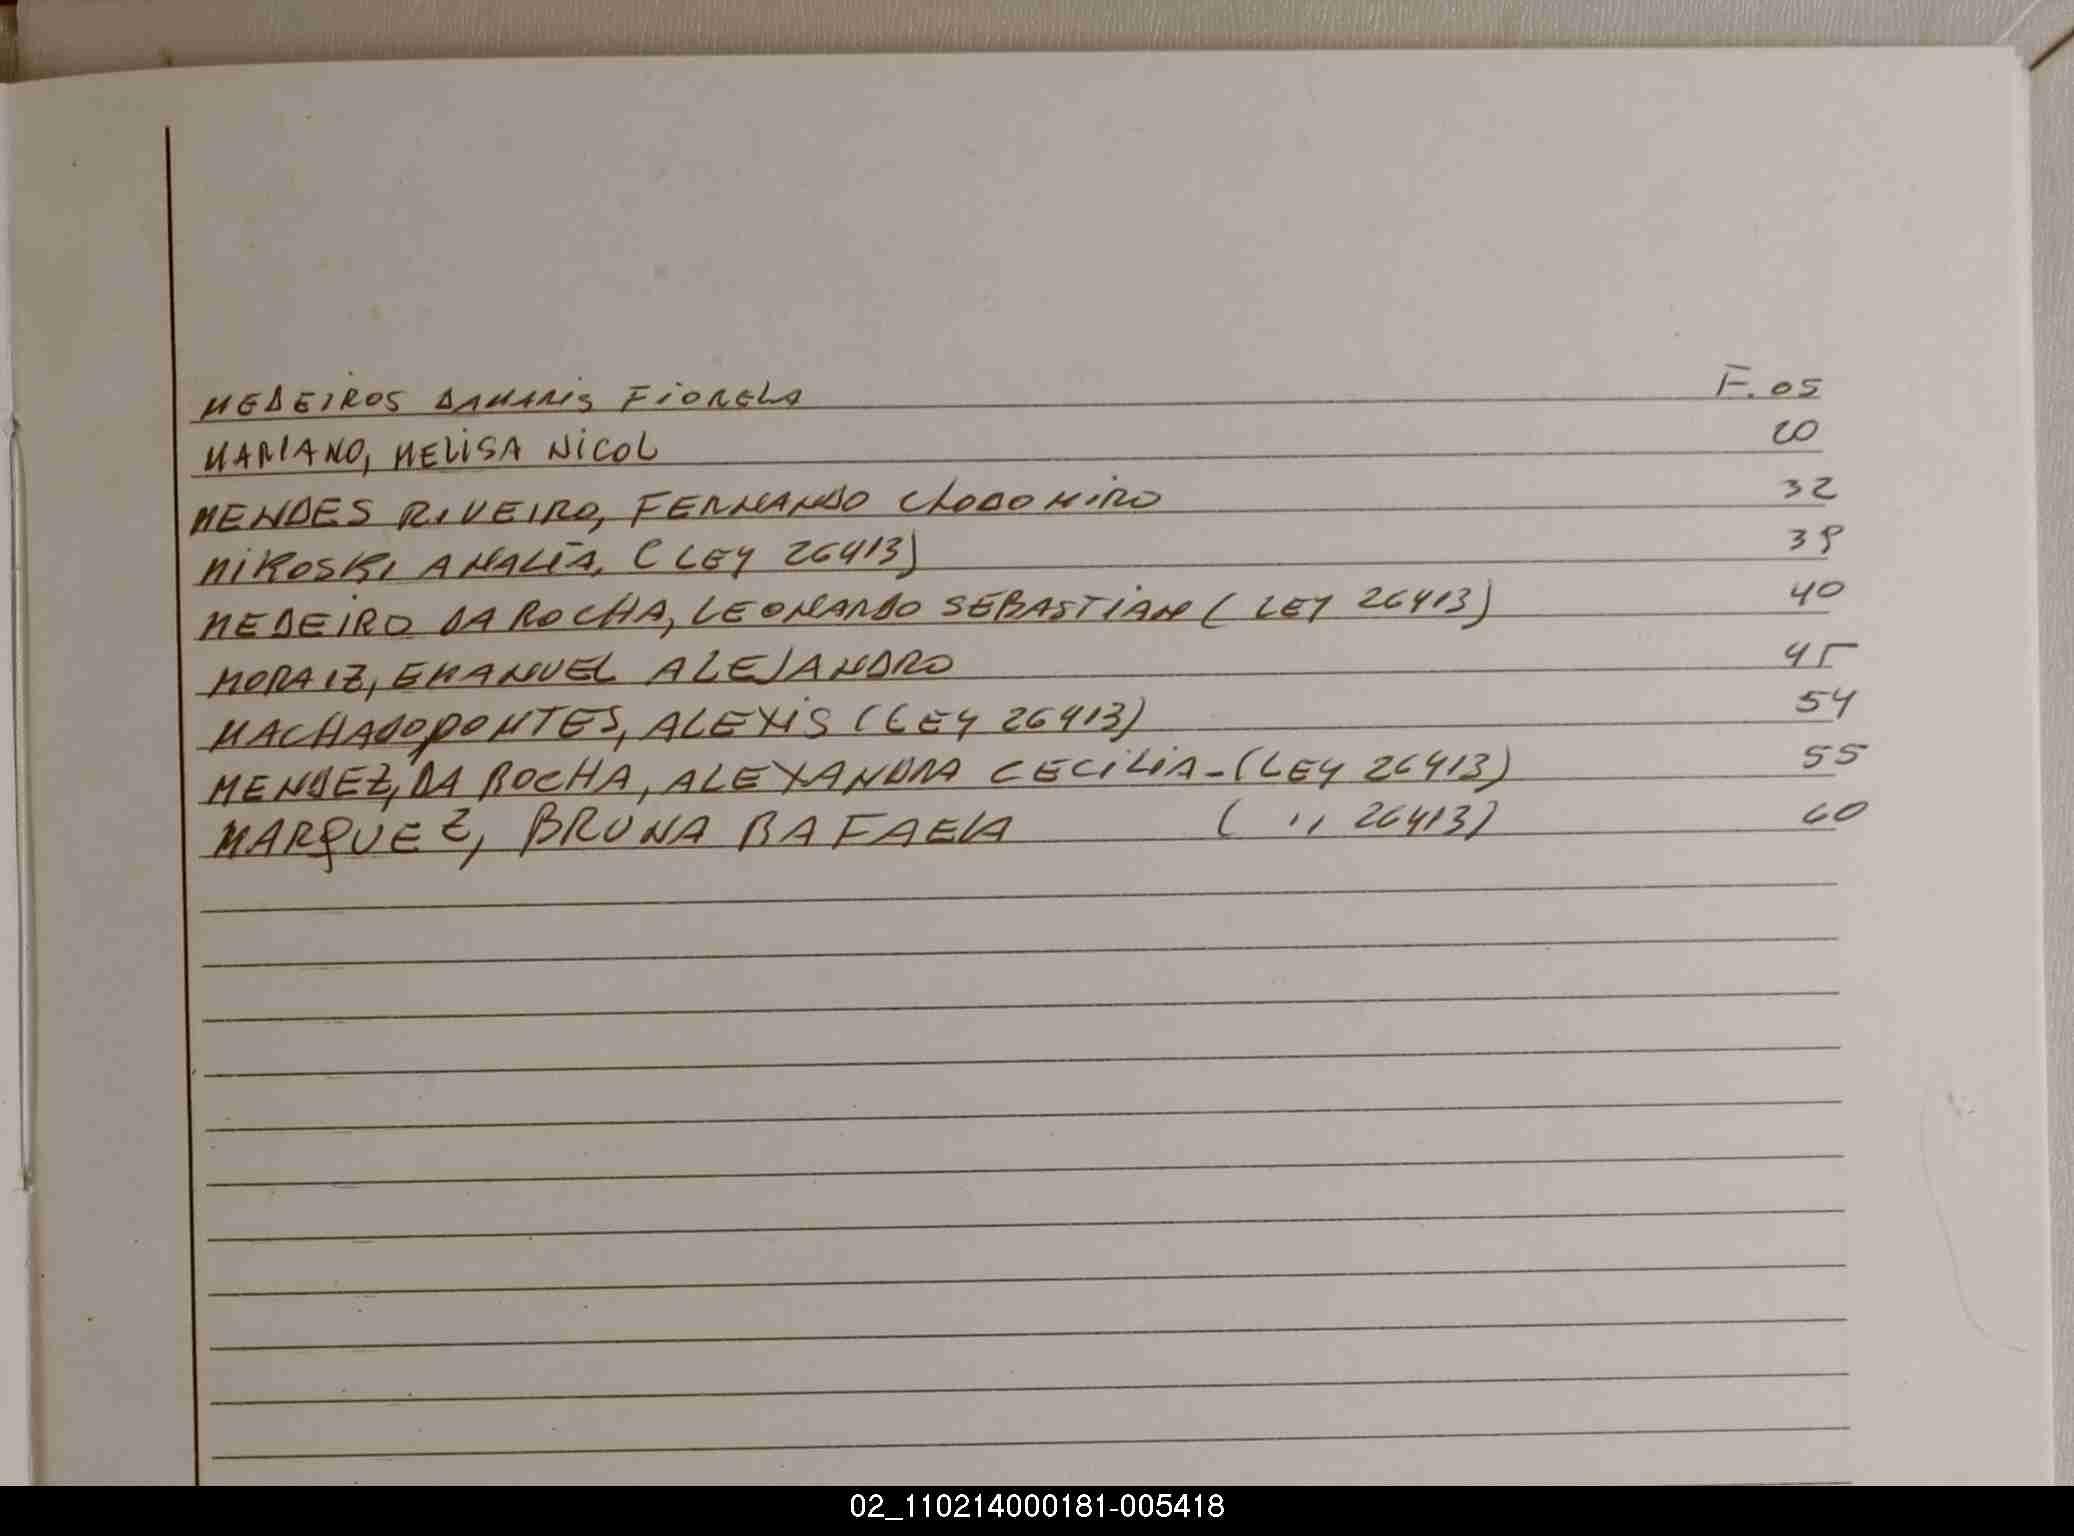 MEDEIROS DAMARIS FiORELA F. 05
MARIANO, MELISA NICOL 20
MENDES RIVEIRO, FERNANDO CLODOMIRO 32
MIKOSKI ANALÍA, (LEY 26413) 39
MEDEIRO DA ROCHA, LEONARDO SEBASTIAN (LEY 26413) 40
MORAIZ, EMANUEL ALEJANDRO 45
MACHADO PONTES, ALEXIS (LEY 26413) 54
MENDEZ, DA ROCHA, ALEXANDRA CECILIA - (LEY 26413) 55
MARQUEZ, BRUNA RAFAELA ( " 26413) 60
02_110214000181-005418